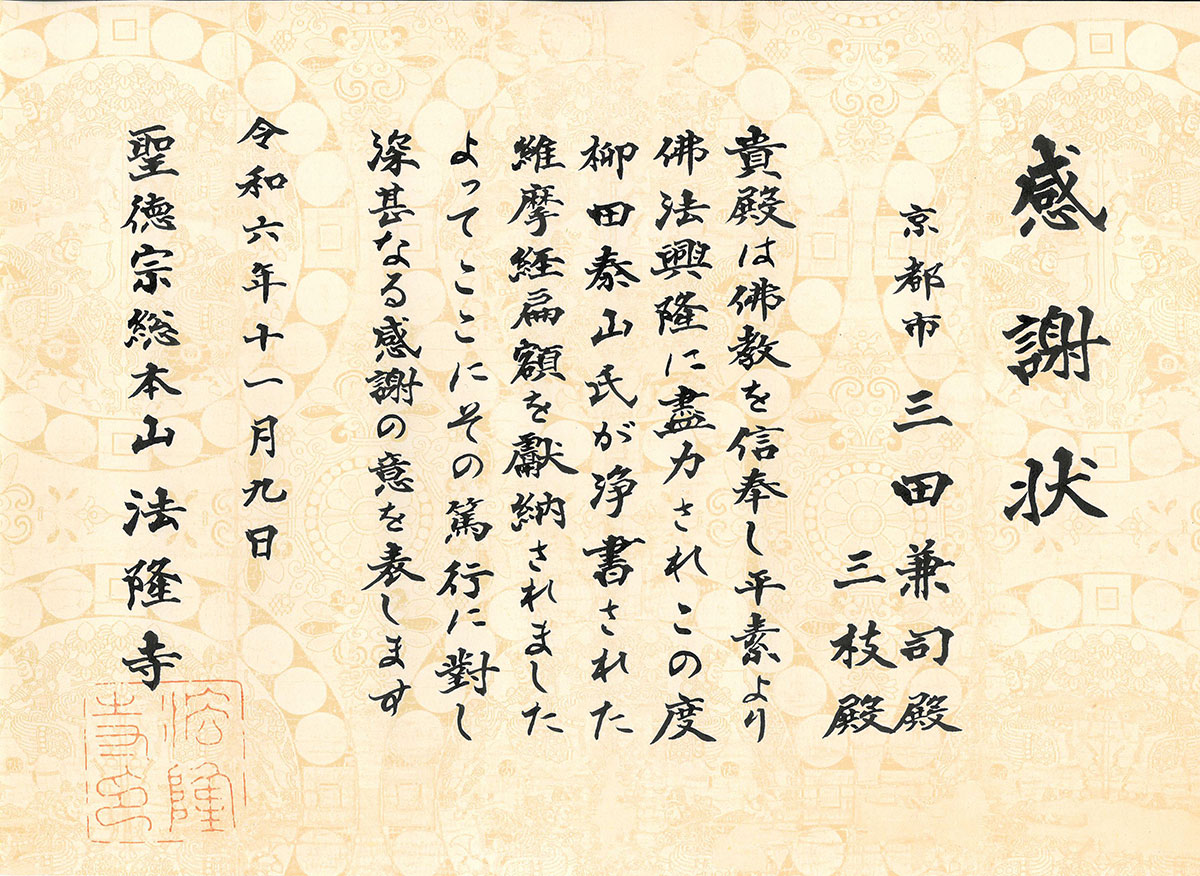 感謝状
京都市 三田兼司殿
三枝殿
貴殿は佛教を信奉し平素より
佛法興隆に盡力されこの度
柳田泰山氏が浄書された
維摩経扁額を献納されました
よってここにその篤行に對し
深甚なる感謝の意を表します
令和六年十一月九日
聖徳宗総本山 法隆寺
法隆
寺印